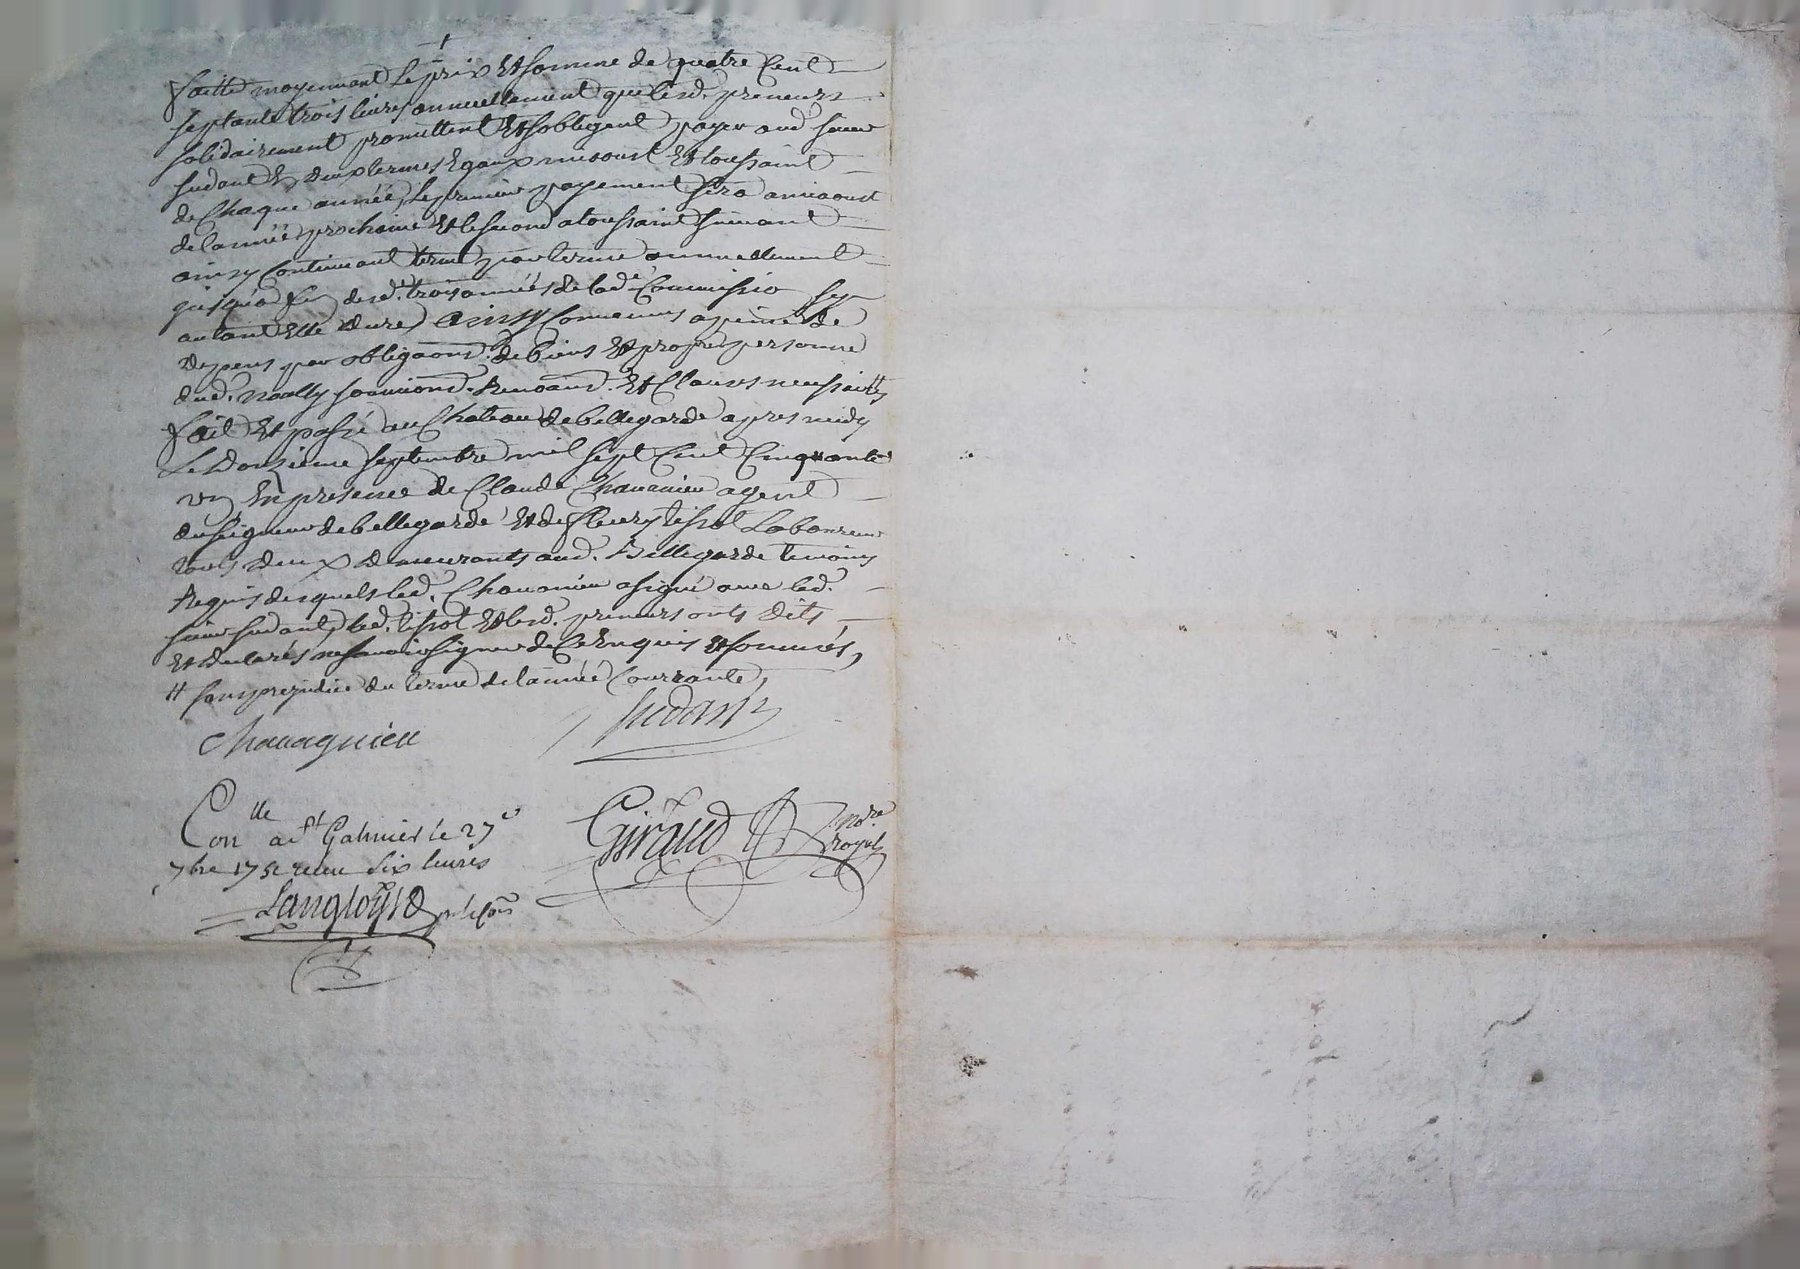 faitte moyennant Le prix Et somme de quatre Cent
septante trois livres annuellement que lesd. preneurs
solidairement promettent Et sobligent payer aud sieur
sudant En deux termes Egaux mioust Et toussaint
de Chaque année, Le premier payement sera a mioust
de lannée prochaine Et le second a toussaint suivant
ainsy Continuant terme par terme annuellement
jusqua fin desd. trois années de lad. Commission sy
autant Elle dure, ainsy Convenus a peine de
depens par obligaons. de biens Et propre personne
dud. soumions. Renoans. Et Clauses necessaires #
fait Et passé au Chateau de bellegarde apres midy
Le douzieme septembre mil sept Cent Cinquante
un En presence de Claude Chavanieu agent
du seigneur de bellegarde Et de fleury tissot Laboureur
tous deux demeurants aud. Bellegarde temoins
Requis desquels led. Chavanieu a signé avec led.
sieur sudant, led. tissot Et lesd. preneurs onts dits
Et declarés ne savoir signer de Ce Enquis Et sommés,
# sans prejudice du terme de lannée Courrante,
Chavagnieu
sudant
Con lle a st Galmier le 27e
7bre 1751 receu six livres
Langlois
Giraud
nore
royal